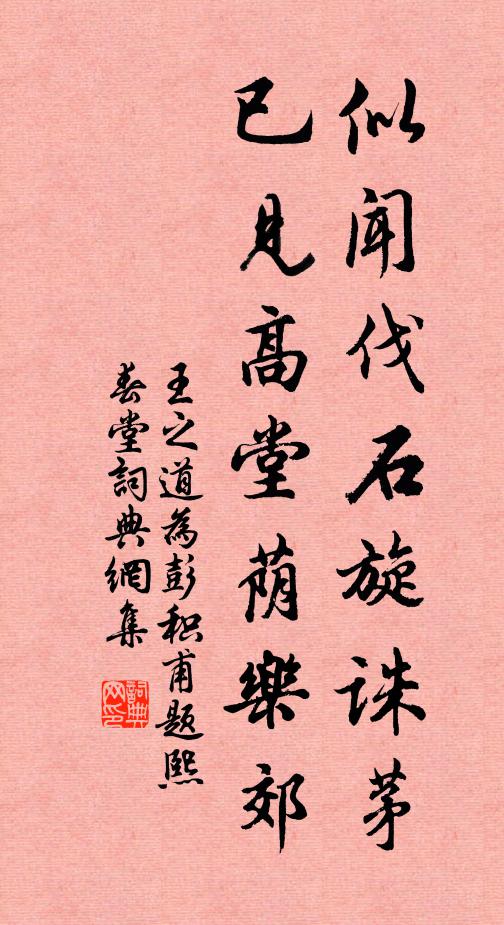 似闻伐石旋诛茅
已见高堂荫樂郊
王之道為彭积甫题熙
春堂詞典網集
詞典
网印